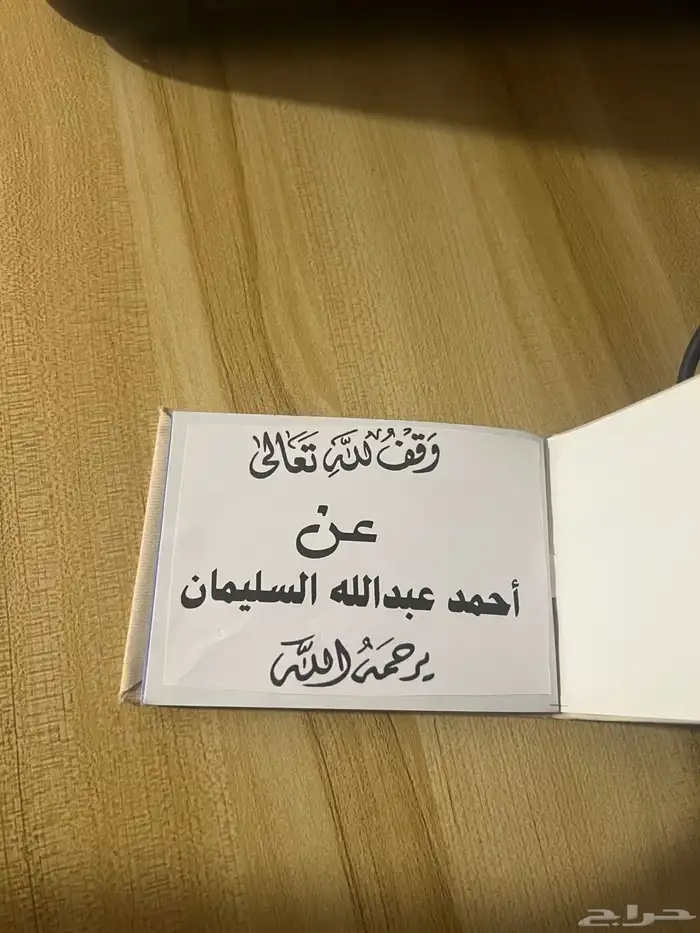 وَقْفُ للهِ تَعَالى
عن
أحمد عبدالله السليمان
يرحمَهُ اللَّه
حراج